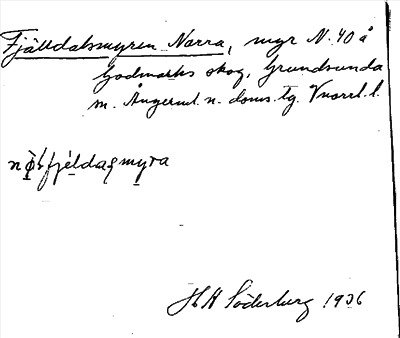 Fjälldalsmyren Norra, myr N. 40 å
Godmarks skog, Grundsunda
m. Ångerml. n. doms. tg. Vnorrl. l.
fjéldaɕmyra
H H Söderberg 1936